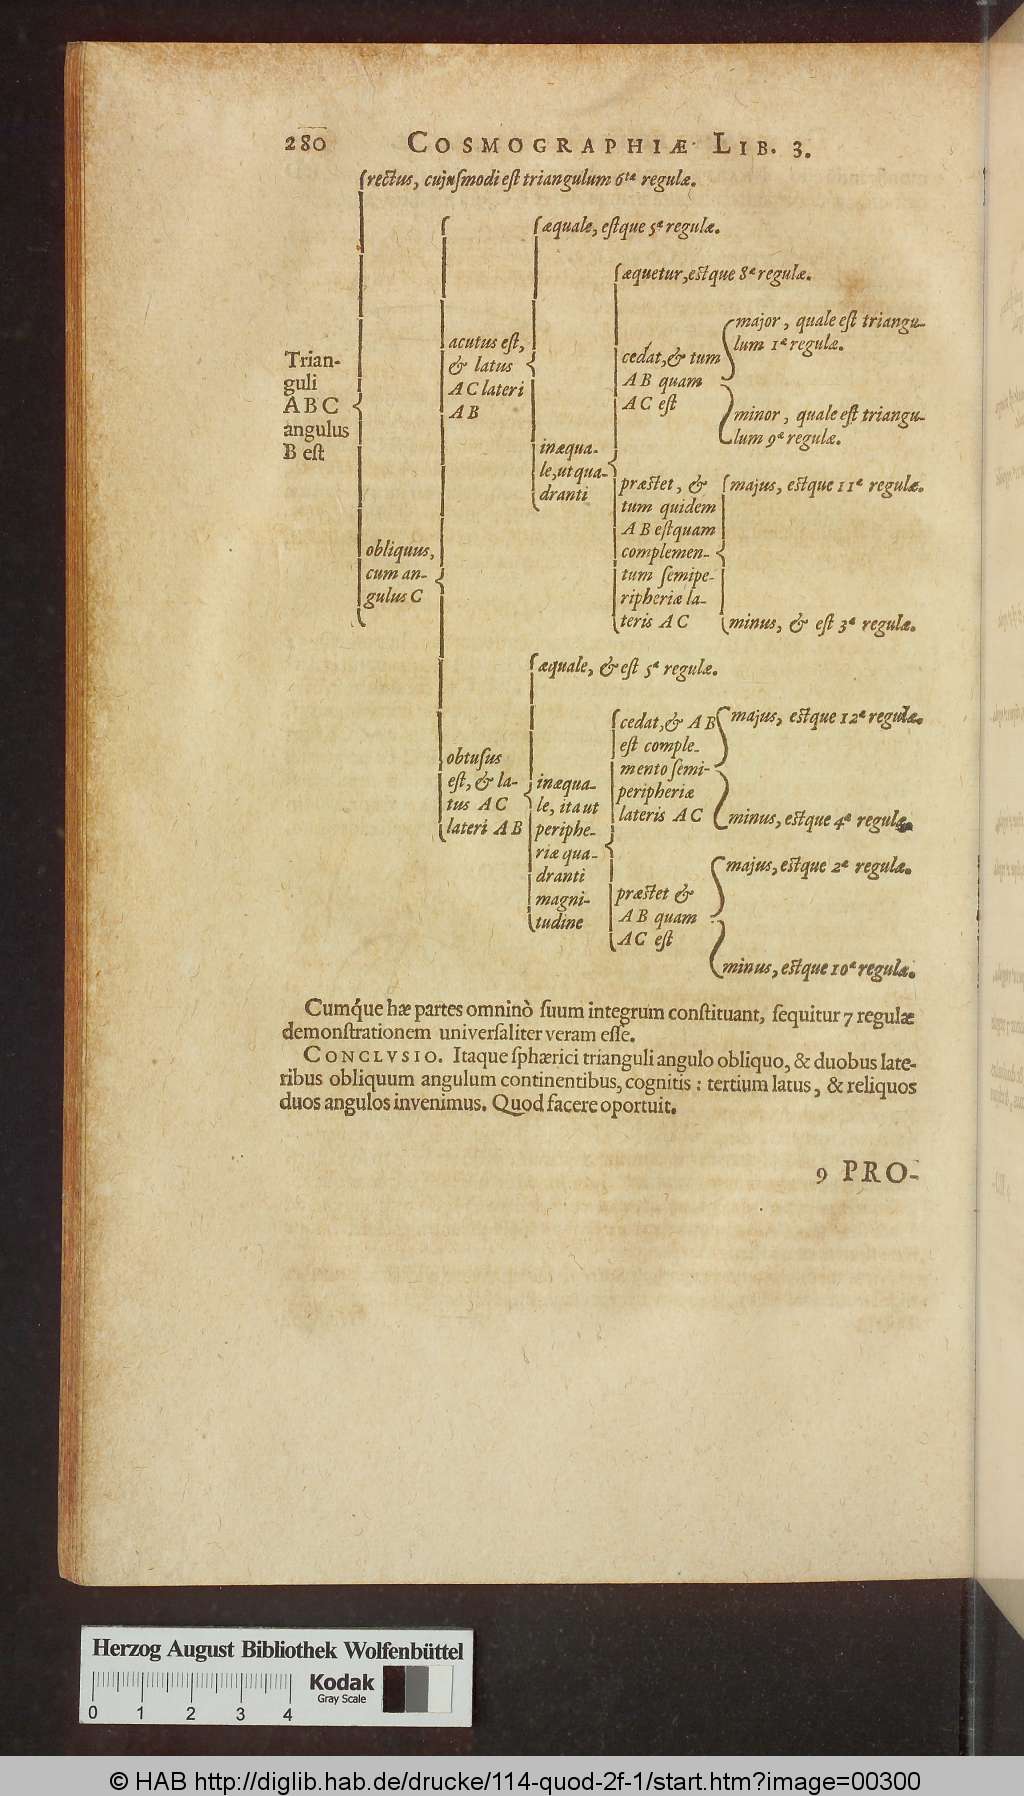 280 COSMOGRAPHIÆ LIB. 3.
rectus, cujusmodi est triangulum 6tæ regulæ.
Trian-
guli
ABC
angulus
B est
obliquus,
cum an-
gulus C
acutus est,
& latus
AC lateri
AB
æquale, estque 5æ regulæ.
inæqua-
le, ut qua-
dranti
æquetur, estque 8æ regulæ.
cedat, & tum
AB quam
AC est
major, quale est triangu-
lum 1æ regulæ.
minor, quale est triangu-
lum 9æ regulæ.
præstet, &
tum quidem
AB est quam
complemen-
tum semipe-
ripheriæ la-
teris AC
majus, estque 11æ regulæ.
minus, & est 3æ regulæ.
obtusus
est, & la-
tus AC
lateri AB
æquale, & est 5æ regulæ.
inæqua-
le, ita ut
periphe-
riæ qua-
dranti
magni-
tudine
cedat, & AB
est comple-
mento semi-
peripheriæ
lateris AC
majus, estque 12æ regulæ.
minus, estque 4æ regulæ.
præstet &
AB quam
AC est
majus, estque 2æ regulæ.
minus, estque 10æ regulæ.
Cumq́ue hæ partes omninò suum integrum constituant, sequitur 7 regulæ
demonstrationem universaliter veram esse.
CONCLVSIO. Itaque sphærici trianguli angulo obliquo, & duobus late-
ribus obliquum angulum continentibus, cognitis: tertium latus, & reliquos
duos angulos invenimus. Quod facere oportuit.
9 PRO-
Herzog August Bibliothek Wolfenbüttel
Kodak
Gray Scale
0 1 2 3 4
© HAB http://diglib.hab.de/drucke/114-quod-2f-1/start.htm?image=00300